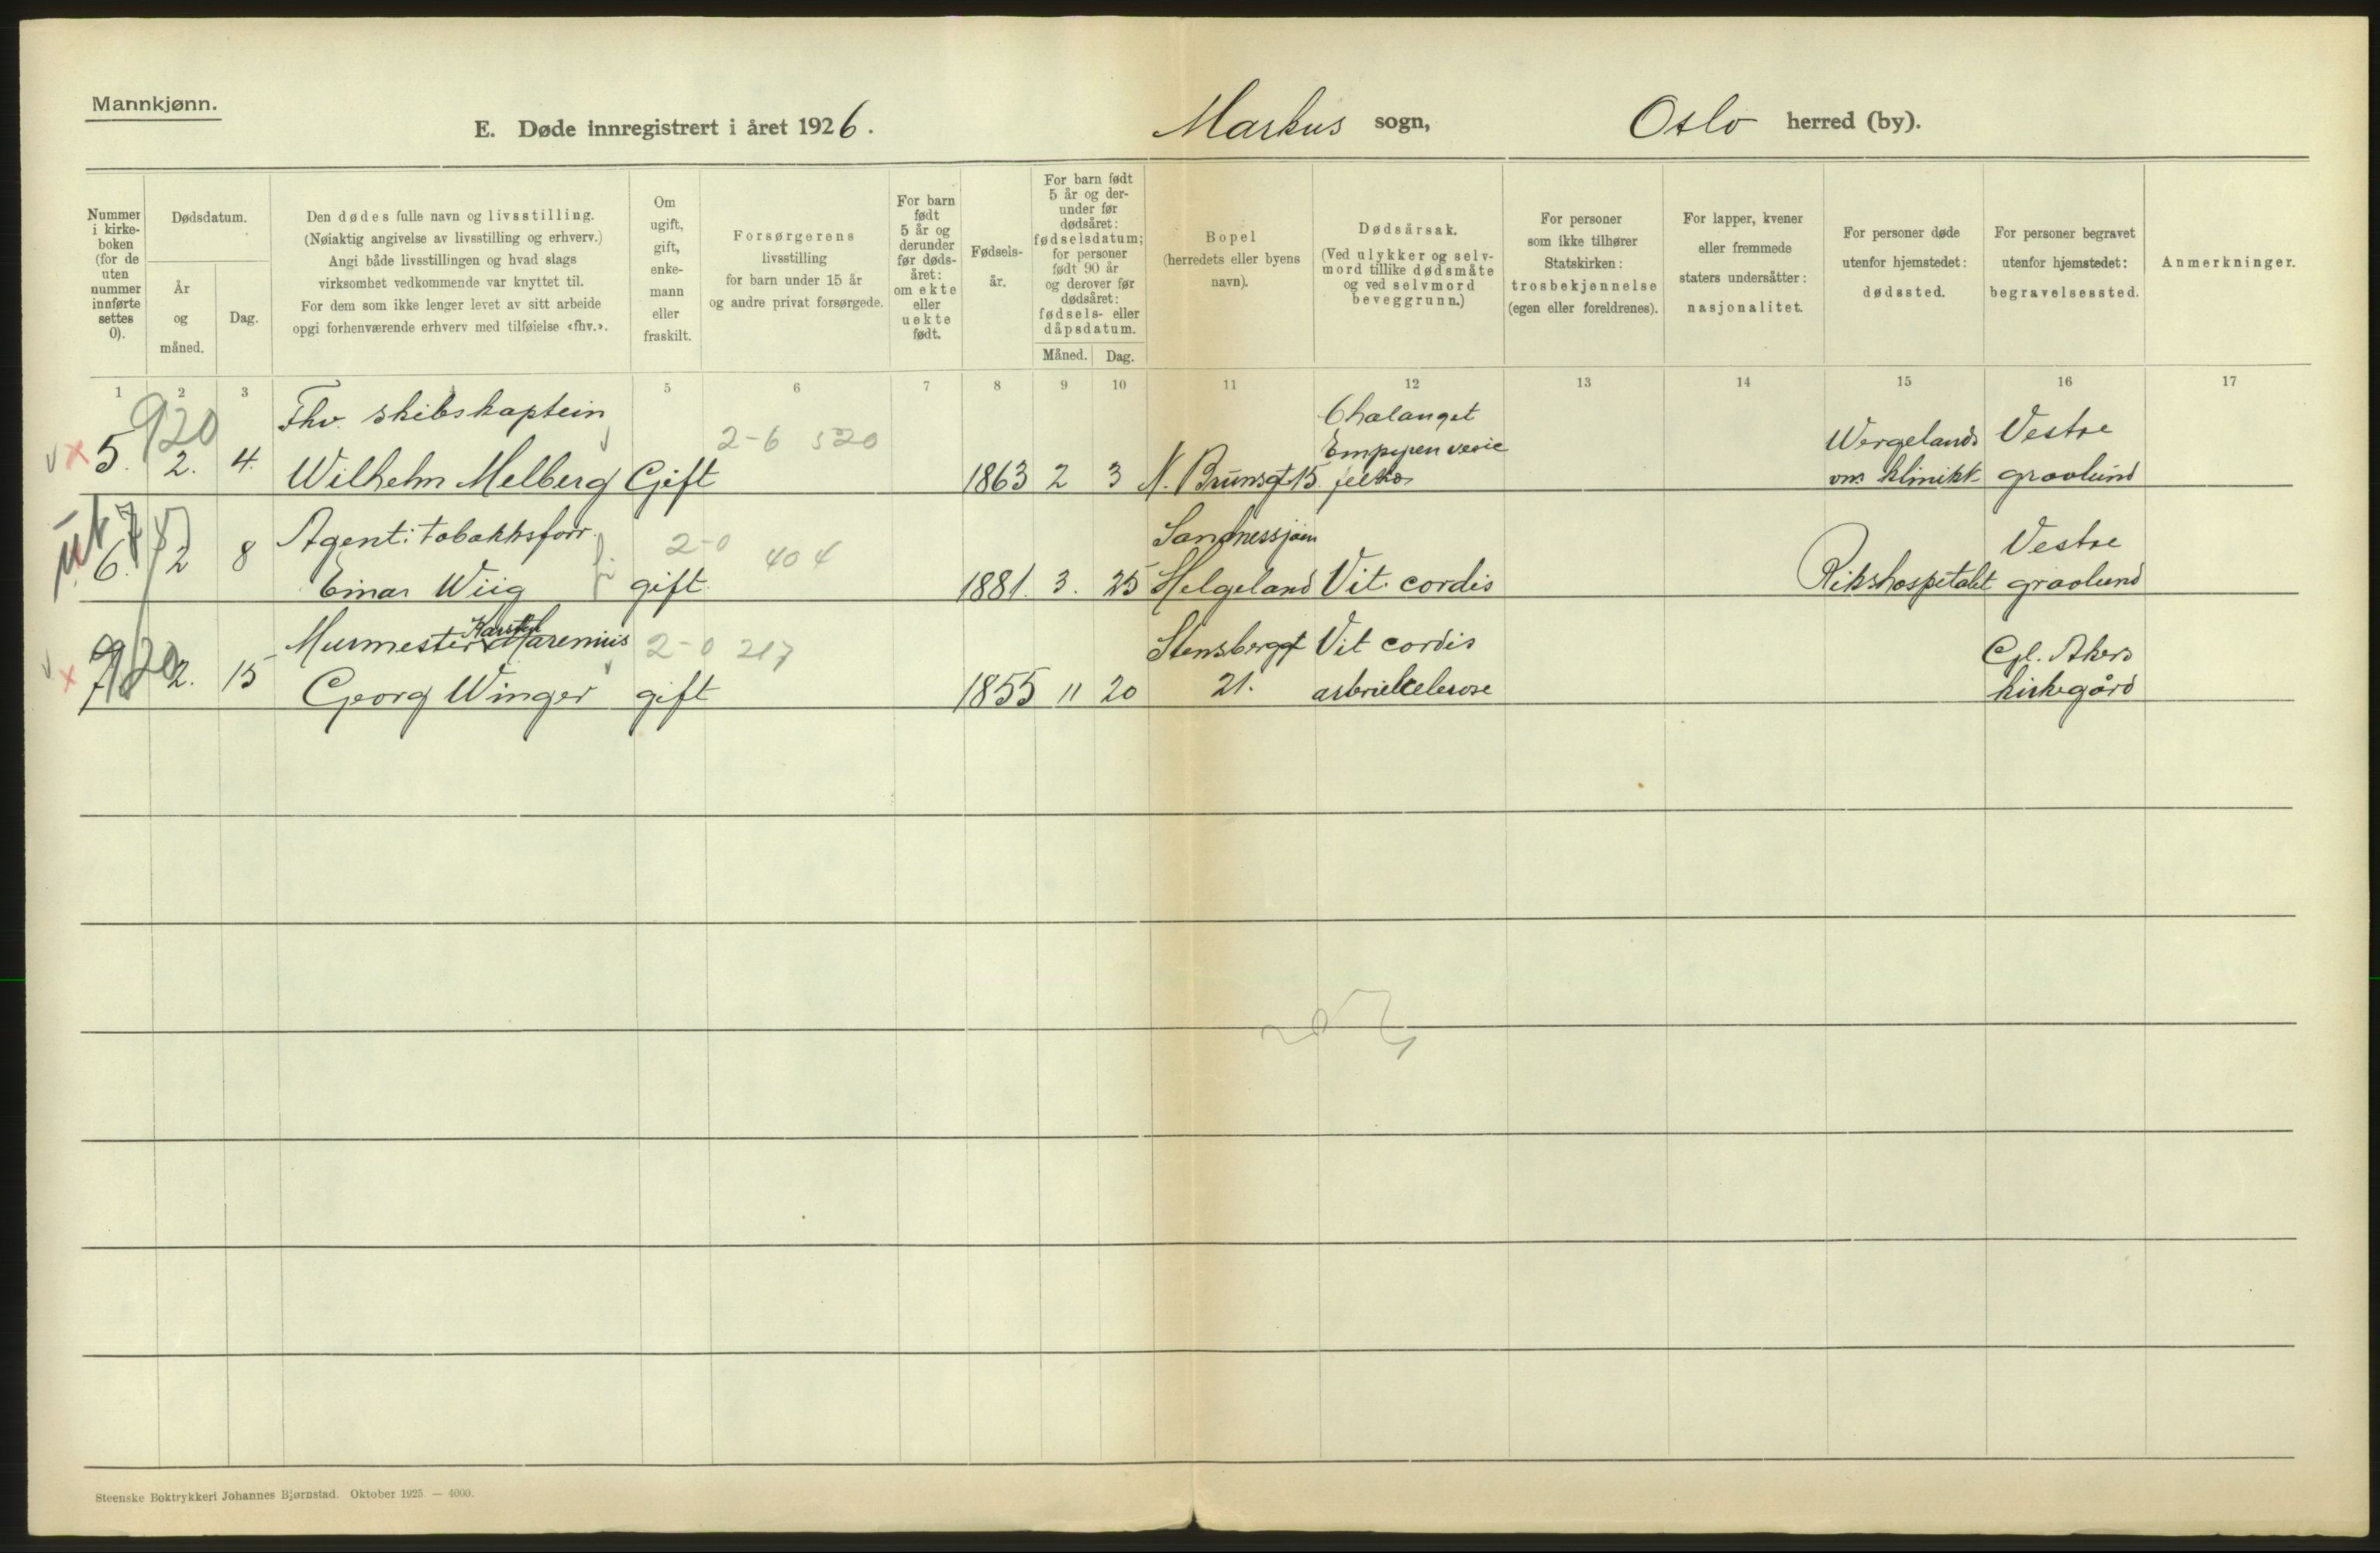 Mannkjønn.
E. Døde innregistrert i året 1926.
Markus sogn,
Oslo herred (by).
Nummer i kirke-boken (for de uten nummer innførte settes 0).
Dødsdatum.
År og måned.
Dag.
Den dødes fulle navn og livsstilling.
(Nøiaktig angivelse av livsstilling og erhverv.)
Angi både livsstillingen og hvad slags
virksomhet vedkommende var knyttet til.
For dem som ikke lenger levet av sitt arbeide
opgi forhenværende erhverv med tilføielse «fhv.».
Om ugift, gift, enke-mann eller fraskilt.
Forsørgerens
livsstilling
for barn under 15 år
og andre privat forsørgede.
For barn født 5 år og derunder før døds-året: om ekte eller uekte født.
Fødsels-år.
For barn født 5 år og der-under før dødsåret: fødselsdatum; for personer født 90 år og derover før dødsåret: fødsels- eller dåpsdatum.
Måned. Dag.
Bopel
(herredets eller byens
navn).
Dødsårsak.
(Ved ulykker og selv-
mord tillike dødsmåte
og ved selvmord
beveggrunn.)
For personer
som ikke tilhører
Statskirken:
trosbekjennelse
(egen eller foreldrenes).
For lapper, kvener
eller fremmede
staters undersåtter:
nasjonalitet.
For personer døde
utenfor hjemstedet:
dødssted.
For personer begravet
utenfor hjemstedet:
begravelsessted.
Anmerkninger.
1 2 3 5 6 7 8 9 10 11 12 13 14 15 16 17
920
Fhv. skibskaptein
2-6 520
Wergelands Vestre
5. 2. 4. Wilhelm Melberg Gift 1863 2 3 N. Brunsgt 15. klinikk gravlund
Agent i tobakksforr. 2-0 404 Sandnessjøen Vestre
6. 2 8 Einar Wiig gift 1881. 3. 25 Helgeland Vit. cordis Rikshospitalet gravlund
920
Murmester Karsten 2-0 217 Stensberggt Vit cordis Gl. Akers
7. 2. 15 Georg Winger gift 1855 11 20 21. kirkegård
Steenske Boktrykkeri Johannes Bjørnstad. Oktober 1925. — 4000.